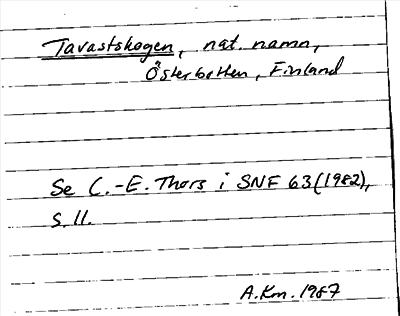 Tavastskogen, nat. namn,
Österbotten, Finland
Se C.-E. Thors i SNF 63 (1982),
s. 11.
A.Km. 1987